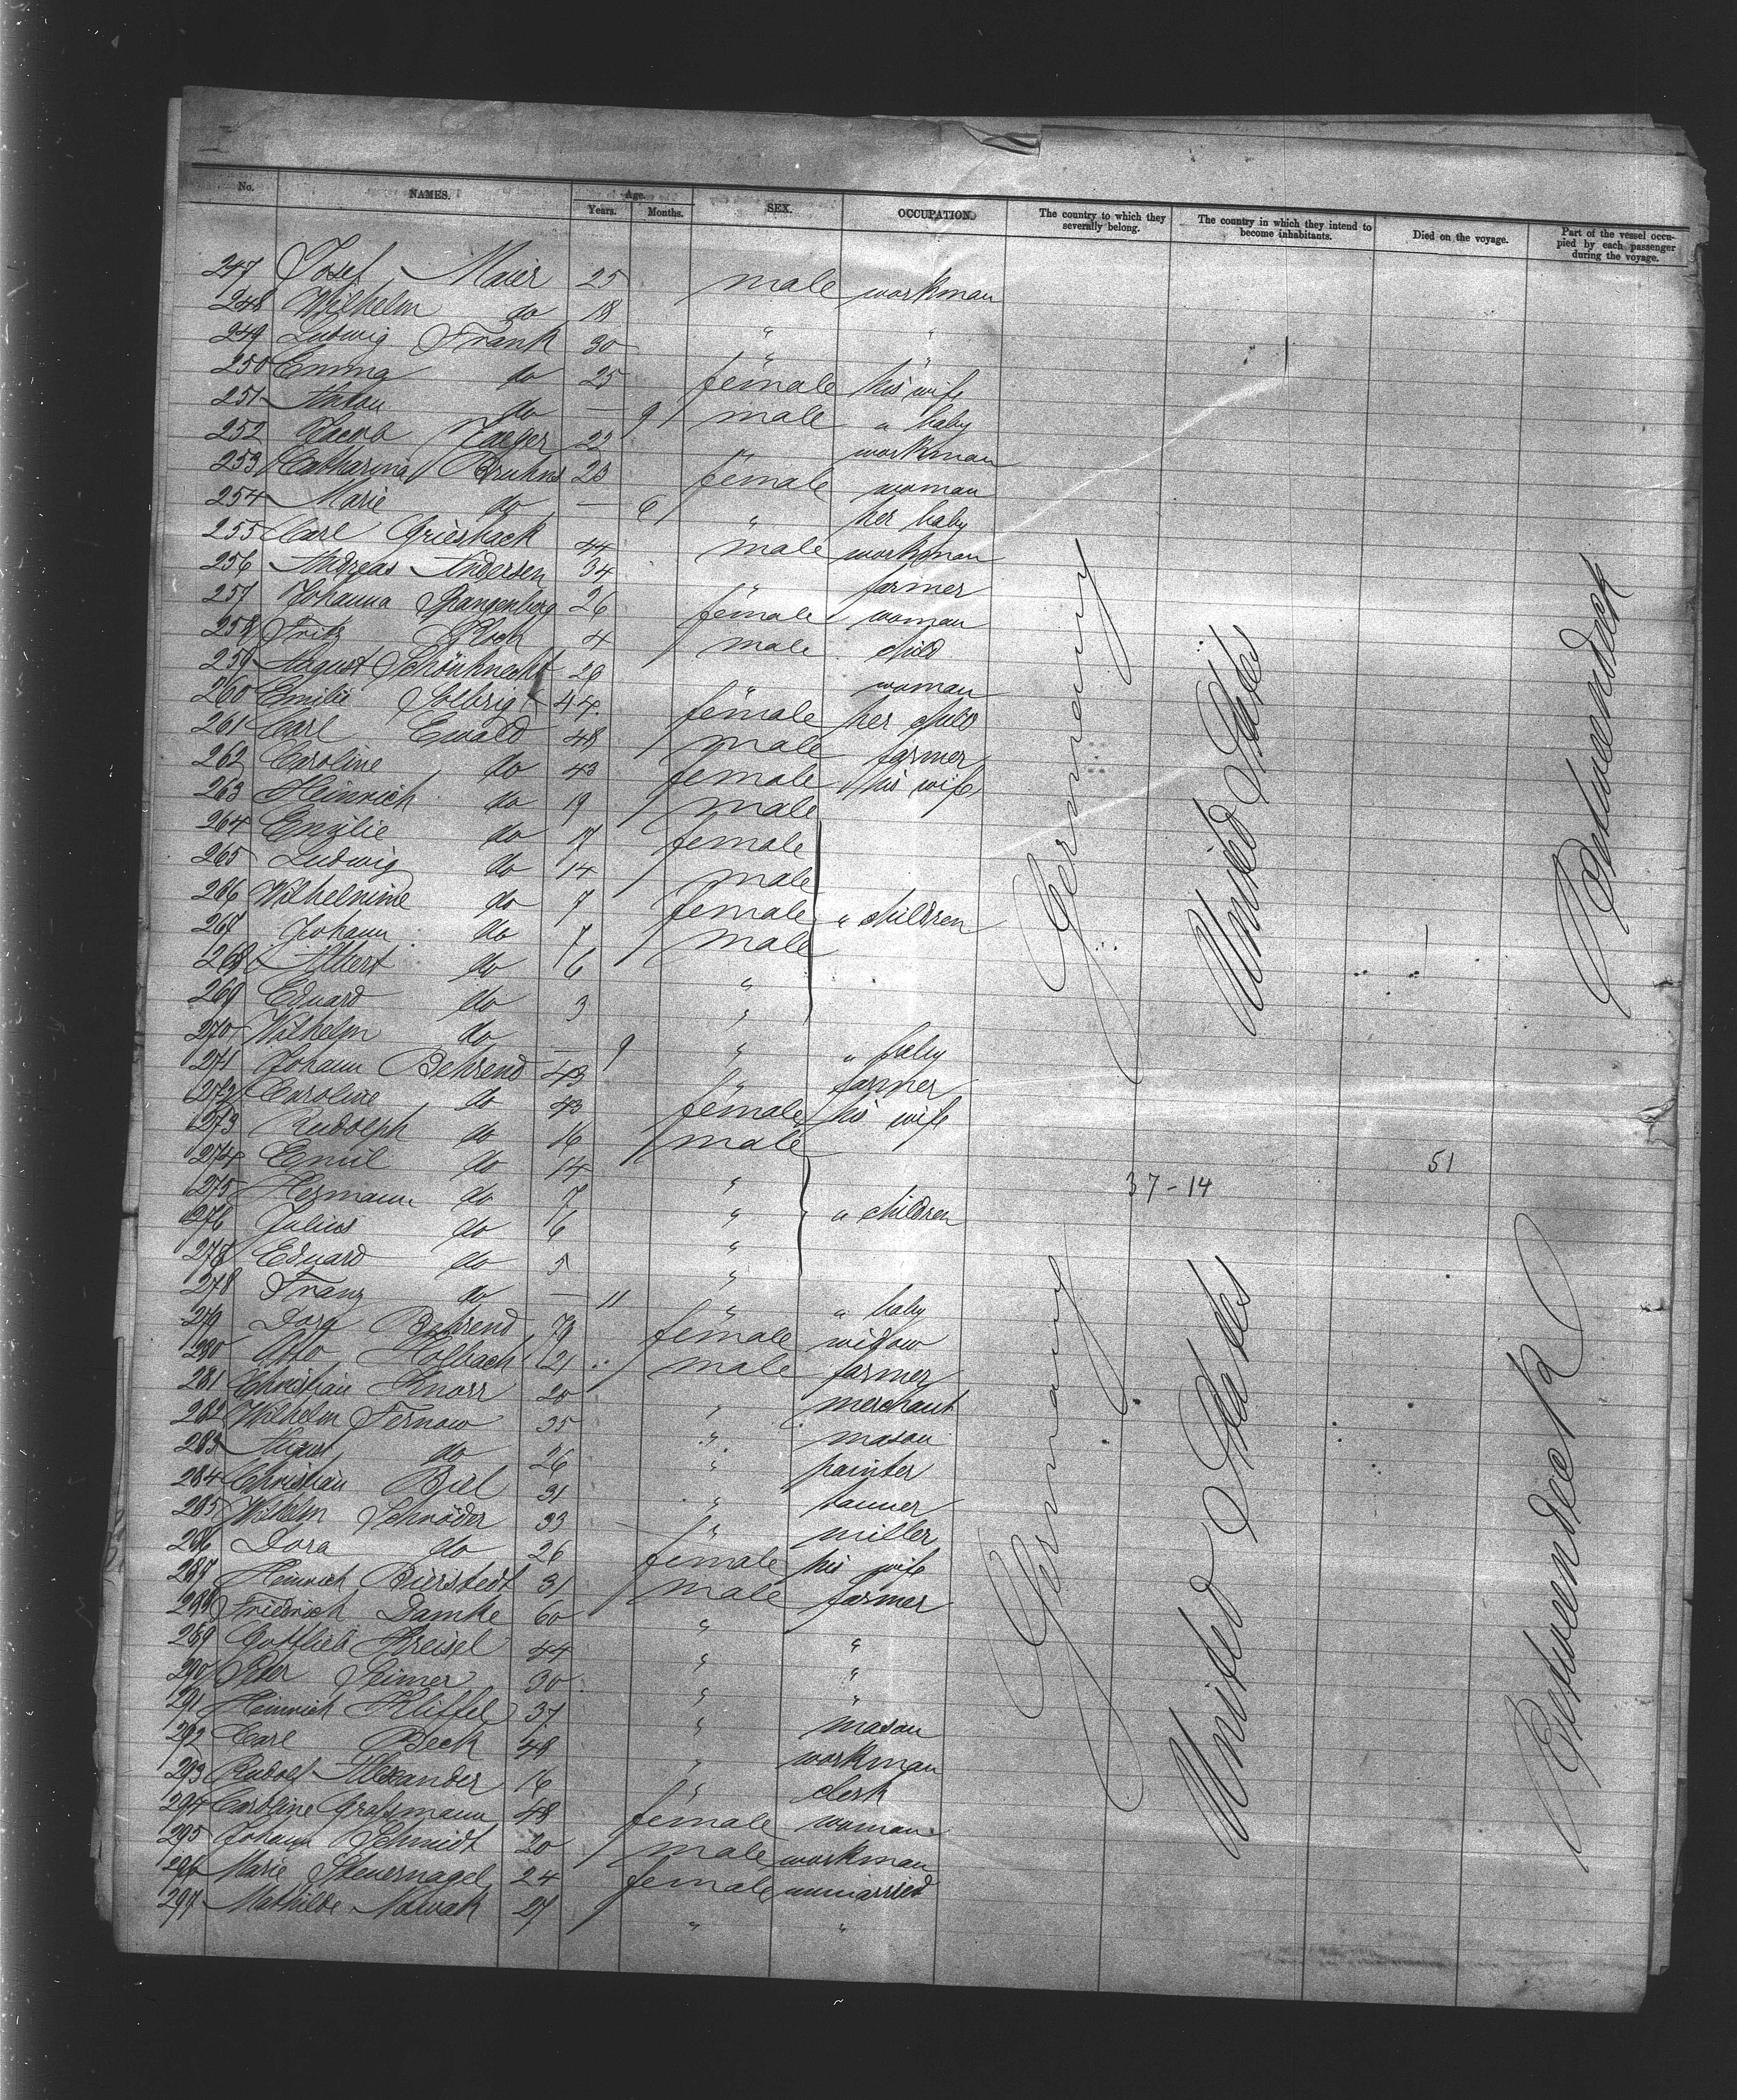 No. NAMES. Age. Years. Months. SEX. OCCUPATION. The country to which they severally belong. The country in which they intend to become inhabitants. Died on the voyage. Part of the vessel occupied by each passenger during the voyage.
247 Josef Maier 25 male workman
248 Wilhelm do 18 " "
249 Ludwig Frank 30 " "
250 Emma do 25 female his wife
251 Anton do — 9 male " baby
252 Jacob Jaeger 22 " workman
253 Catharina Bruhns 23 female woman
254 Marie do — 6 " her baby
255 Carl Griesback 44 male workman
256 Andreas Andersen 34 " farmer
257 Johanna Spangenberg 26 female woman
258 Fritz Block 4 male child
259 August Schönknecht 20 " woman
260 Emilie Solbrig 44 female her child
261 Carl Ewald 48 male farmer
262 Caroline do 43 female his wife
263 Heinrich do 19 male
264 Emilie do 17 female
265 Ludwig do 14 male
266 Wilhelmine do 7 female " children
267 Johann do 7 male
268 Albert do 6 "
269 Eduard do 3 "
270 Wilhelm do — 9 " " baby
271 Johann Behrend 43 " farmer
272 Caroline do 43 female his wife
273 Rudolph do 16 male
274 Emil do 14 "
275 Hermann do 7 " " children
276 Julius do 6 "
277 Eduard do 5 "
278 Franz do — 11 " " baby
279 Dora Behrend 79 female widow
280 Otto Holbach 21 male farmer
281 Christian Knorr 20 " merchant
282 Wilhelm Fernow 35 " mason
283 August do 26 " painter
284 Christian Biel 31 " tanner
285 Wilhelm Schröder 33 " miller
286 Dora do 26 female his wife
287 Heinrich Bierstedt 31 male farmer
288 Friedrich Damke 60 " "
289 Gottlieb Kreisel 44 " "
290 Peter Reimer 30 " "
291 Heinrich Kliffel 37 " mason
292 Carl Beck 48 " workman
293 Rudolf Alexander 16 " clerk
294 Caroline Grassmann 48 female woman
295 Johann Schmidt 20 male workman
296 Marie Steuernagel 24 female unmarried
297 Mathilde Nowak 27 " "
Germany United States Betweendeck
37-14 51
Germany United States Betweendeck